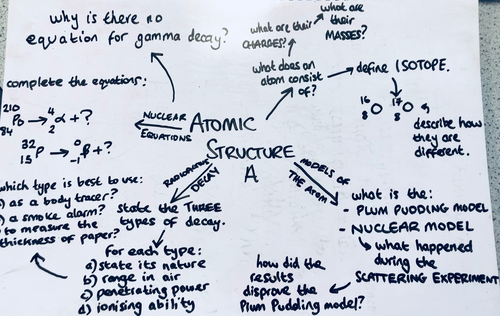 why is there no
equation for gamma decay?
what are their
CHARGES?
what are
their
MASSES?
what does an
atom consist
of?
define ISOTOPE.
16
8 O
17
8 O
describe how
they are
different.
complete the equations:
210
84 Po → 4 2 α + ?
32
15 P → 0 -1 β + ?
NUCLEAR
EQUATIONS
ATOMIC
STRUCTURE
A
RADIOACTIVE
DECAY
MODELS OF
THE ATOM
which type is best to use:
as a body tracer?
a smoke alarm?
to measure the
thickness of paper?
state the THREE
types of decay.
for each type:
a) state its nature
b) range in air
c) penetrating power
d) ionising ability
what is the:
- PLUM PUDDING MODEL
- NUCLEAR MODEL
what happened
during the
SCATTERING EXPERIMENT
how did the
results
disprove the
Plum Pudding model?